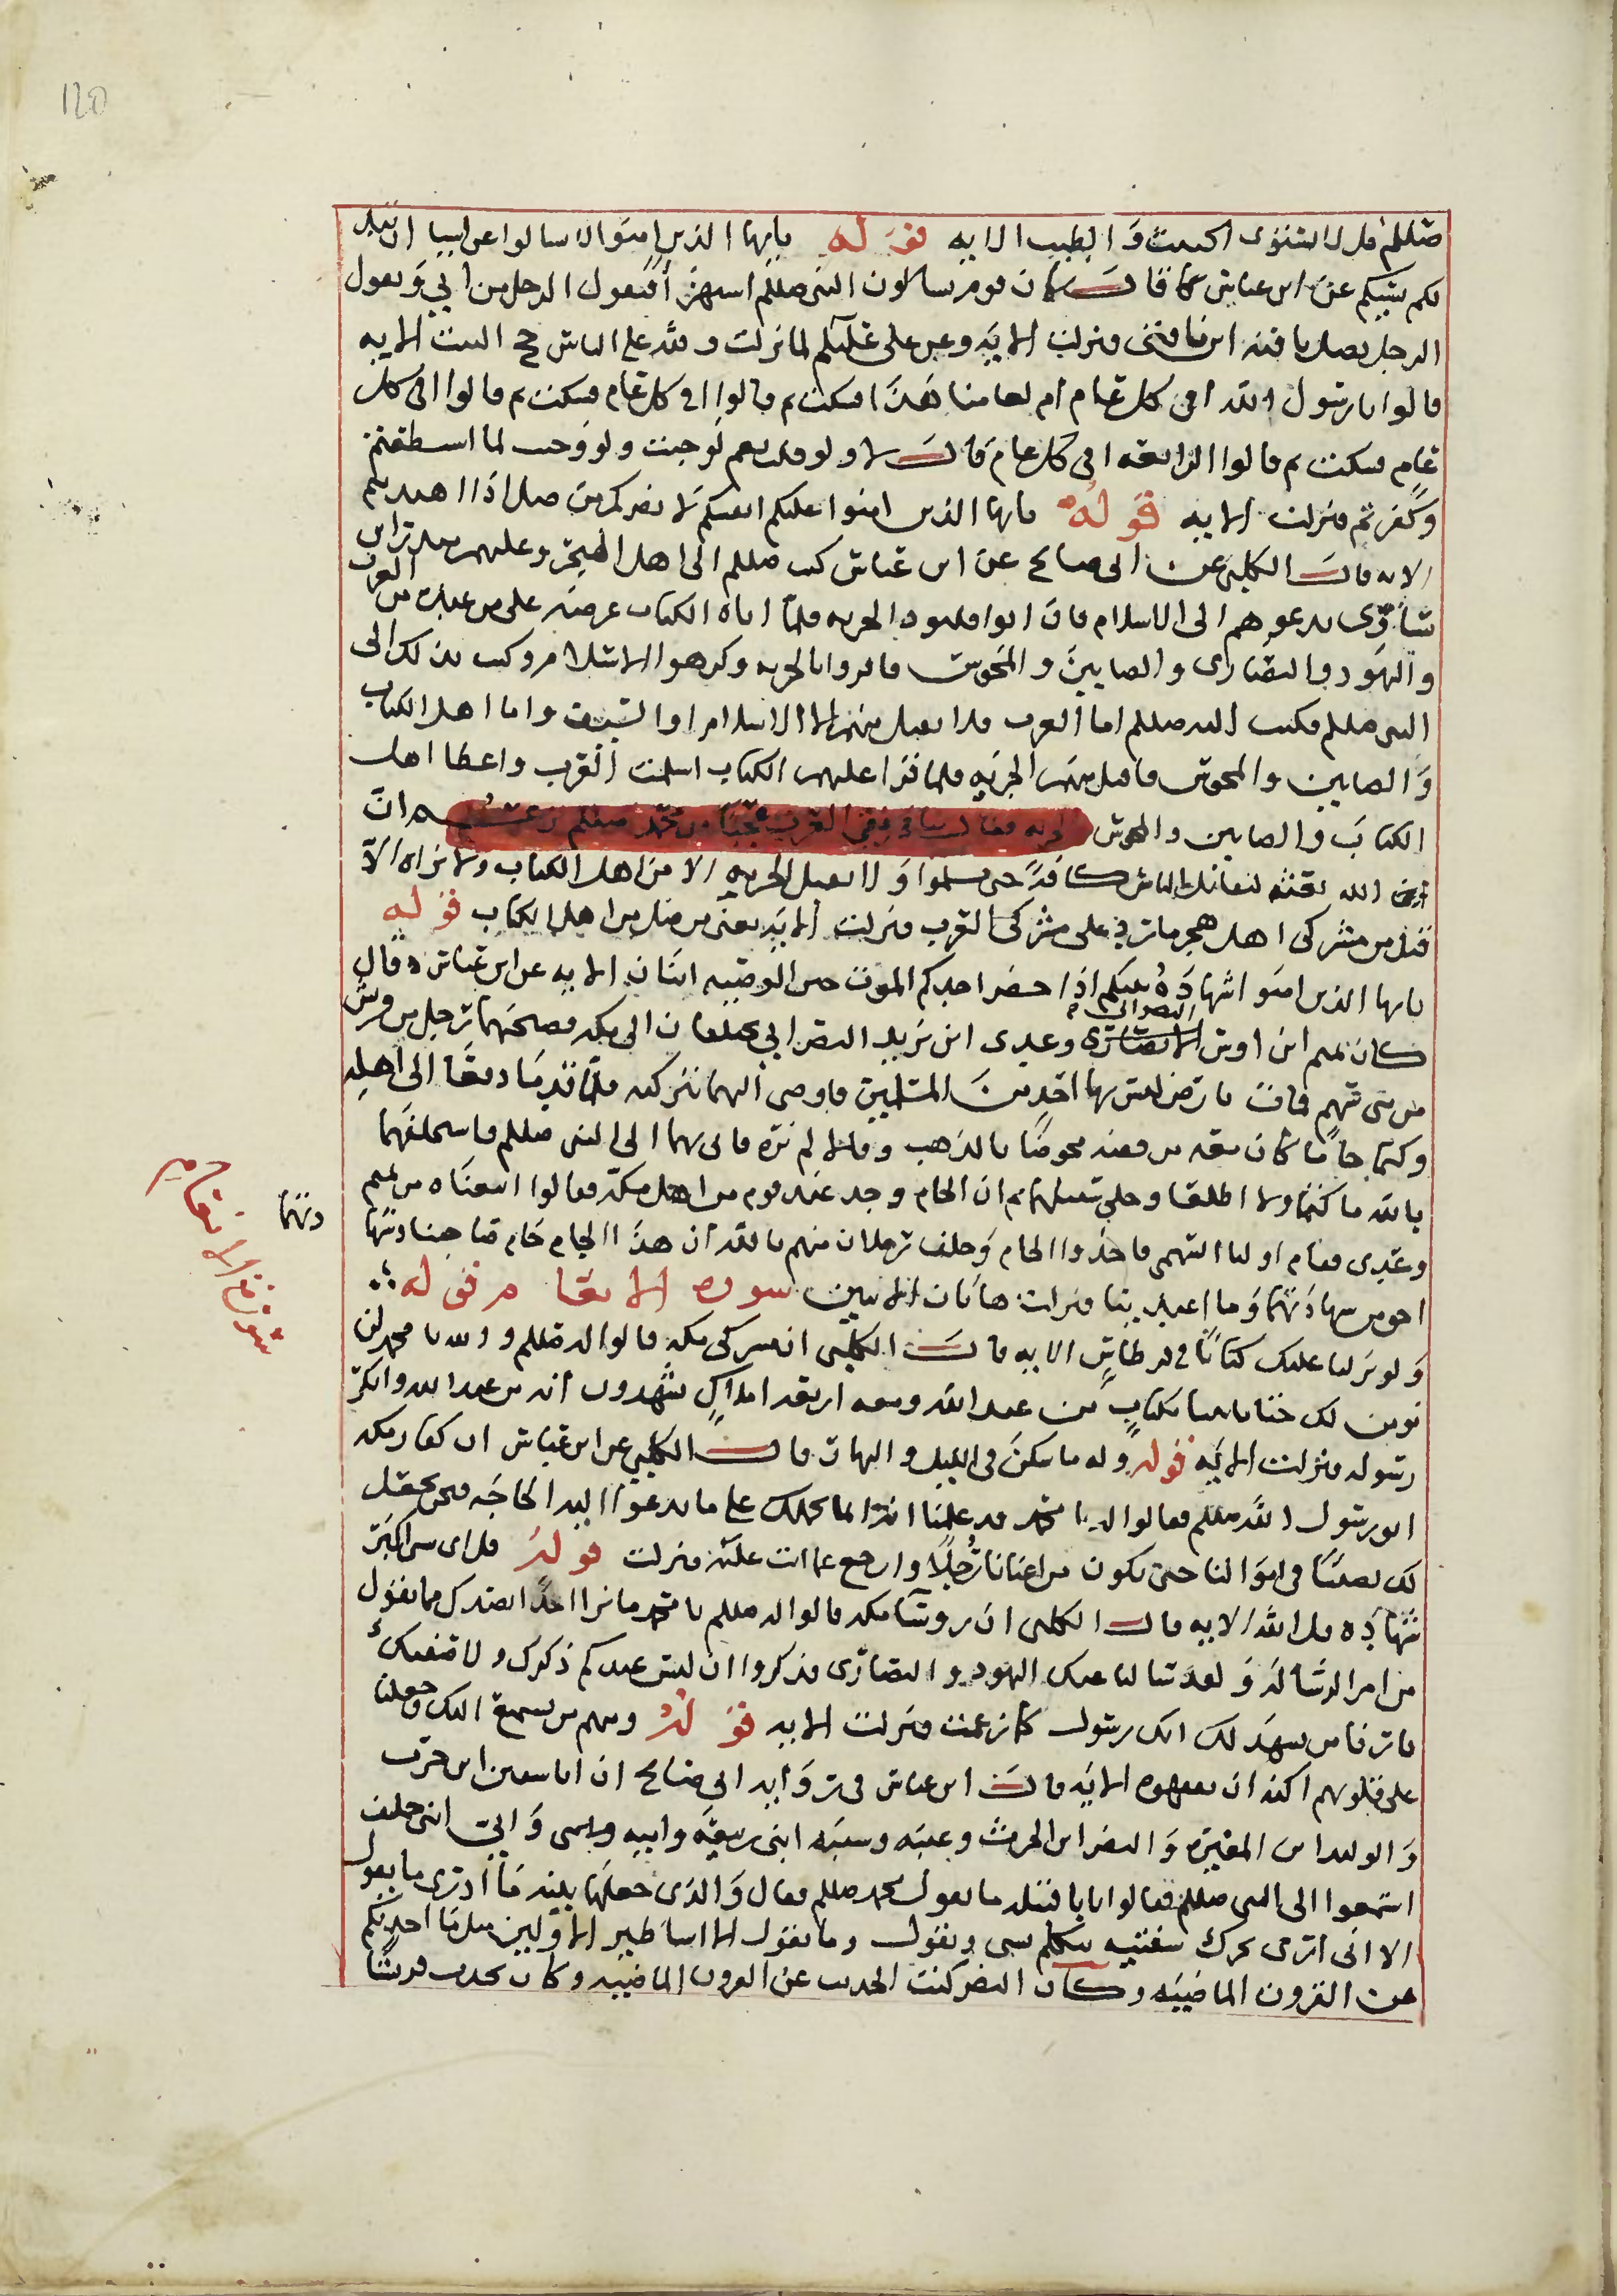 120
صللم قل لا يستوى الخبيث وَالطيب الايه قوله يايها الذين امنوا لا تسالوا عن اشيا ان تبد
لكم تسؤكم عن ابن عباس كما قال كان قوم يسالون النبى صللم استهزا فيقول الرجل من ابي وَيقول
الرجل يضل ناقته اين ناقتى فنزلت الايه وعن على عليلم لما نزلت ولله على الناس حج البيت الايه
قالوا يا رسول الله افى كل عام ام لعامنا هذا فسكت ثم قالوا افى كل عام فسكت ثم قالوا افى كل
عام فسكت ثم قالوا الرابعه افى كل عام قال لا ولو قلت نعم لوجبت ولو وجبت لما اسطعتم
وكفرتم فنزلت الايه قوله يايها الذين امنوا عليكم انفسكم لا يضركم من ضل اذا اهتديتم
الايه قال الكلبى عن ابى صالح عن ابن عباس كتب صللم الى اهل هجر وعليهم منذر ابن
ساوى يدعوهم الى الاسلام فان ابوا فليودوا الجزيه فلما اتاه الكتاب عرضه على من عنده من العرب
واليهود والنصارى والصابين والمجوس فاقروا بالجزيه وكرهوا الاسلام وكتب بذلك الى
النبى صللم فكتب اليه صللم اما العرب فلا تقبل منهم الا الاسلام او السيف واما اهل الكتاب
وَالصابين والمجوس فاقبل منهم الجزيه فلما قرا عليهم الكتاب اسلمت العرب واعطا اهل
الكتاب والصابين والمجوس الجزيه فقال منافقى العرب عجبا من محمد صللم زعم ان
الله بعثه ليقاتل الناس كافة حتى يسلموا وَلا يقبل الجزيه الا من اهل الكتاب ولا نراه الا
قبل من مشركى اهل هجر ما رد على مشركى العرب فنزلت الايه يعنى من ضل من اهل الكتاب قوله
يايها الذين امنوا شهادة بينكم اذا حضر احدكم الموت حين الوصيه اثنان الايه عن ابن عباس ه قال
كان تميم ابن اوس الانصارى النصرانى وعدى ابن زيد النصرانى يختلفان الى مكه فصحبهما رجل من قريش
من بنى سهم فمات بارض ليس بها احد من المسلمين فاوصى اليهما بتركته فلما قدما دفعا الى اهله
وكتما جاما كان معه من فضه مخوصا بالذهب وقالا لم نره فاتى بهما الى النبى صللم فاستحلفهما
بالله ما كتما ولا اطلعا وخلى سبيلهما ثم ان الجام وجد عند قوم من اهل مكه فقالوا ابتعناه من تميم
وعدى فقام اوليا السهمى فاخذوا الجام وَحلف رجلان منهم بالله ان هذا الجام جام صاحبنا وشهادتنا
دتهما
احق من شهادتهما وَما اعتدينا فنزلت هاتان الايتين سوره الانعام قوله
سورة الانعام
وَلو نزلنا عليك كتابا فى قرطاس الايه قال الكلبى ان مشركى مكه قالوا له صللم والله يا محمد لن
نومن لك حتى تاتينا بكتاب من عند الله ومعه اربعه املاك يشهدون انه من عند الله وانك
رسوله فنزلت الايه قوله وله ما سكن فى الليل والنهار قال الكلبى عن ابن عباس ان كفار مكه
اتو رسول الله صللم فقالوا له يا محمد قد علمنا انه انما يحملك على ما تدعوا اليه الحاجه فنحن نجعل
لك نصيبا فى اموالنا حتى تكون من اغنانا رجلا وارجع عما انت عليه فنزلت قوله قل اى شى اكبر
شهاده قل الله الايه قال الكلبى ان روسا مكه قالوا له صللم يا محمد ما نرا احدا يصدقك مما تقول
من امر الرسالة وَلقد سالنا عنك اليهود والنصارى فذكروا ان ليس عندهم ذكرك ولا صفتك
فارنا من يشهد لك انك رسول كما زعمت فنزلت الايه قوله ومنهم من يستمع اليك وجعلنا
على قلوبهم اكنه ان يفقهوه الايه قال ابن عباس فى روايه ابى صالح ان ابا سفين ابن حرب
وَالوليد ابن المغيره وَالنضر ابن الحرث وعتبه وشيبه ابنى ربيعه واميه وَابى ابنى خلف
استمعوا الى النبى صللم فقالوا يا با قتيله ما يقول محمد صللم فقال وَالذى جعلها بينه ما ادرى ما يقول
الا انى ارى يحرك شفتيه يتكلم بشى ويقول وما يقول الا اساطير الاولين مثل ما احدثكم
عن القرون الماضيه وكان النضر كثير الحديث عن القرون الماضيه وكان يحدث قريشا